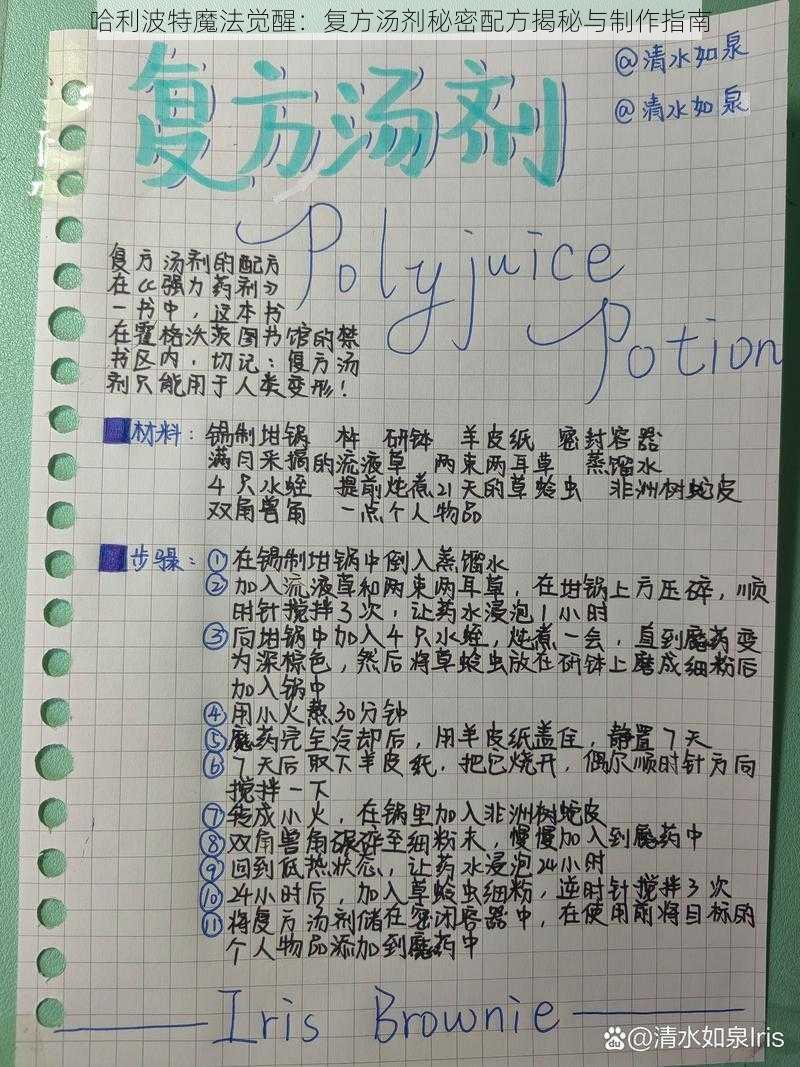 哈利波特魔法觉醒：复方汤剂秘密配方揭秘与制作指南
@清水如泉
@清水如泉
复方汤剂
Polyjuice
Potion
复方汤剂的配方
在《强力药剂》
一书中，这本书
在霍格沃茨图书馆的禁
书区内，切记：复方汤
剂只能用于人类变形！
材料：锡制坩锅 杵 研钵 羊皮纸 密封容器
满月采摘的流液草 两束两耳草 蒸馏水
4只水蛭 提前炖煮21天的草蛉虫 非洲树蛇皮
双角兽角 一点个人物品
步骤：①在锡制坩锅中倒入蒸馏水
②加入流液草和两束两耳草，在坩锅上方压碎，顺
时针搅拌3次，让药水浸泡1小时
③向坩锅中加入4只水蛭，炖煮一会，直到魔药变
为深棕色，然后将草蛉虫放在研钵上磨成细粉后
加入锅中
④用小火熬30分钟
⑤魔药完全冷却后，用羊皮纸盖住，静置7天
⑥7天后取下羊皮纸，把它烧开，偶尔顺时针方向
搅拌一下
⑦转成小火，在锅里加入非洲树蛇皮
⑧双角兽角碾碎至细粉末，慢慢加入到魔药中
⑨回到低热状态，让药水浸泡24小时
⑩24小时后，加入草蛉虫细粉，逆时针搅拌3次
⑪将复方汤剂储在密闭容器中，在使用前将目标的
个人物品添加到魔药中
Iris Brownie
du @清水如泉Iris